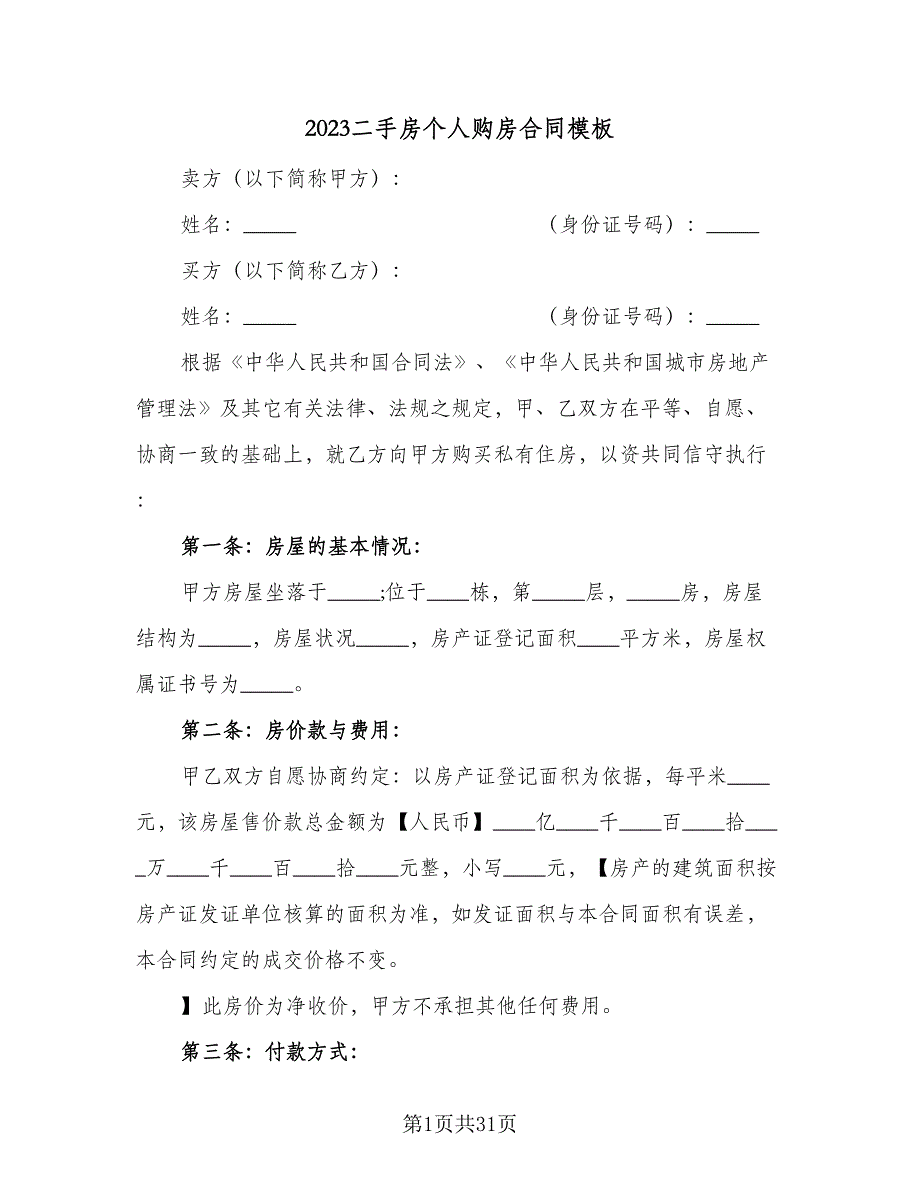 2023二手房个人购房合同模板
卖方（以下简称甲方）：
姓名：_____ （身份证号码）：_____
买方（以下简称乙方）：
姓名：_____ （身份证号码）：_____
根据《中华人民共和国合同法》、《中华人民共和国城市房地产
管理法》及其它有关法律、法规之规定，甲、乙双方在平等、自愿、
协商一致的基础上，就乙方向甲方购买私有住房，以资共同信守执行
：
第一条：房屋的基本情况：
甲方房屋坐落于_____;位于____栋，第_____层，_____房，房屋
结构为_____，房屋状况_____，房产证登记面积____平方米，房屋权
属证书号为_____。
第二条：房价款与费用：
甲乙双方自愿协商约定：以房产证登记面积为依据，每平米____
元，该房屋售价款总金额为【人民币】____亿____千____百____拾___
_万____千____百____拾____元整，小写____元，【房产的建筑面积按
房产证发证单位核算的面积为准，如发证面积与本合同面积有误差，
本合同约定的成交价格不变。
】此房价为净收价，甲方不承担其他任何费用。
第三条：付款方式：
第1页共31页